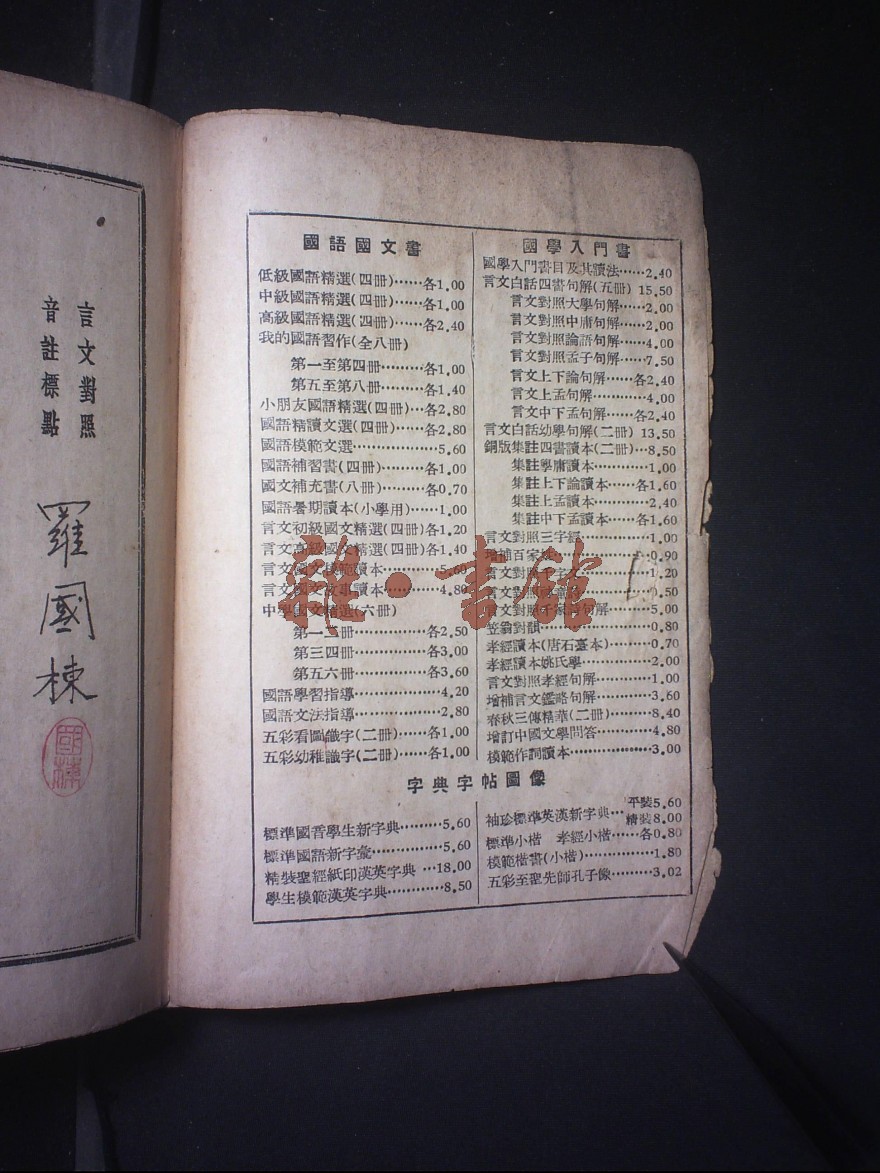 言文對照
音註標點
羅國棟
國棟
國語國文書
低級國語精選(四冊)……各1.00
中級國語精選(四冊)……各1.00
高級國語精選(四冊)……各2.40
我的國語習作(全八冊)
第一至第四冊………各1.00
第五至第八冊………各1.40
小朋友國語精選(四冊)…各2.80
國語精讀文選(四冊)……各2.80
國語模範文選……………5.60
國語補習書(四冊)………各1.00
國文補充書(八冊)………各0.70
國語暑期讀本(小學用)……1.00
言文初級國文精選(四冊)各1.20
言文高級國文精選(四冊)各1.40
言文國文模範讀本………5.60
言文國文故事讀本………4.80
中學國文精選(六冊)
第一二冊…………各2.50
第三四冊…………各3.00
第五六冊…………各3.60
國語學習指導……………4.20
國語文法指導……………2.80
五彩看圖識字(二冊)……各1.00
五彩幼稚識字(二冊)……各1.00
國學入門書
國學入門書目及其讀法……2.40
言文白話四書句解(五冊) 15.50
言文對照大學句解……2.00
言文對照中庸句解……2.00
言文對照論語句解……4.00
言文對照孟子句解……7.50
言文上下論句解……各2.40
言文上孟句解………4.00
言文中下孟句解……各2.40
言文白話幼學句解(二冊) 13.50
銅版集註四書讀本(二冊)…8.50
集註學庸讀本…………1.00
集註上下論讀本……各1.60
集註上孟讀本…………2.40
集註中下孟讀本……各1.60
言文對照三字經…………1.00
增補百家姓………………0.90
言文對照千字文…………1.20
言文對照 0.50
言文對照千家詩句解……5.00
笠翁對韻…………………0.80
孝經讀本(唐石臺本)……0.70
孝經讀本姚氏學…………2.00
言文對照孝經句解………1.00
增補言文鑑略句解………3.60
春秋三傳精華(二冊)……8.40
增訂中國文學問答………4.80
模範作詞讀本……………3.00
字典字帖圖像
標準國音學生新字典………5.60
標準國語新字彙……………5.60
精裝聖經紙印漢英字典…18.00
學生模範漢英字典…………8.50
袖珍標準英漢新字典…平裝5.60
精裝8.00
標準小楷 孝經小楷……各0.80
模範楷書(小楷)…………1.80
五彩至聖先師孔子像………3.02
雜·書館